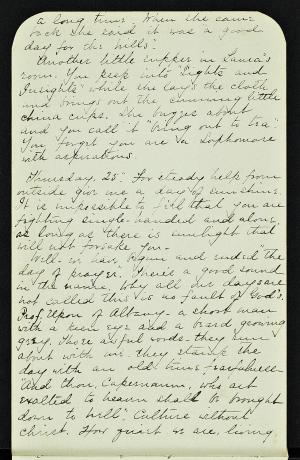 a long time. When she came
back she said it was a good
day for the hills.
Another little supper in Laura's
room. You peek into "Lights and
Insights" while she lays the cloth
and brings out the cunning little
china cups. She buzzes about
and you call it "being out to tea".
You forget you are a Sophomore
with aspirations.
Thursday, 25. For steady help from
outside give me a day of sunshine
It is impossible to feel that you are
fighting single-handed and alone,
as long as there is sunlight that
will not forsake you.
Well - we have begun and ended "the
day of prayer." There's a good sound
in the name. Why all our days are
not called this is no fault of God's.
Prof. Upson of Albany - a short man
with a keen eye and a beard growing
grey. Those awful words - they run
about with me - they stamp the
day with an old time
"And thou, Capernaum, who art
exalted to heaven shall be brought
down to hell". Culture without
Christ. How quiet we are, living